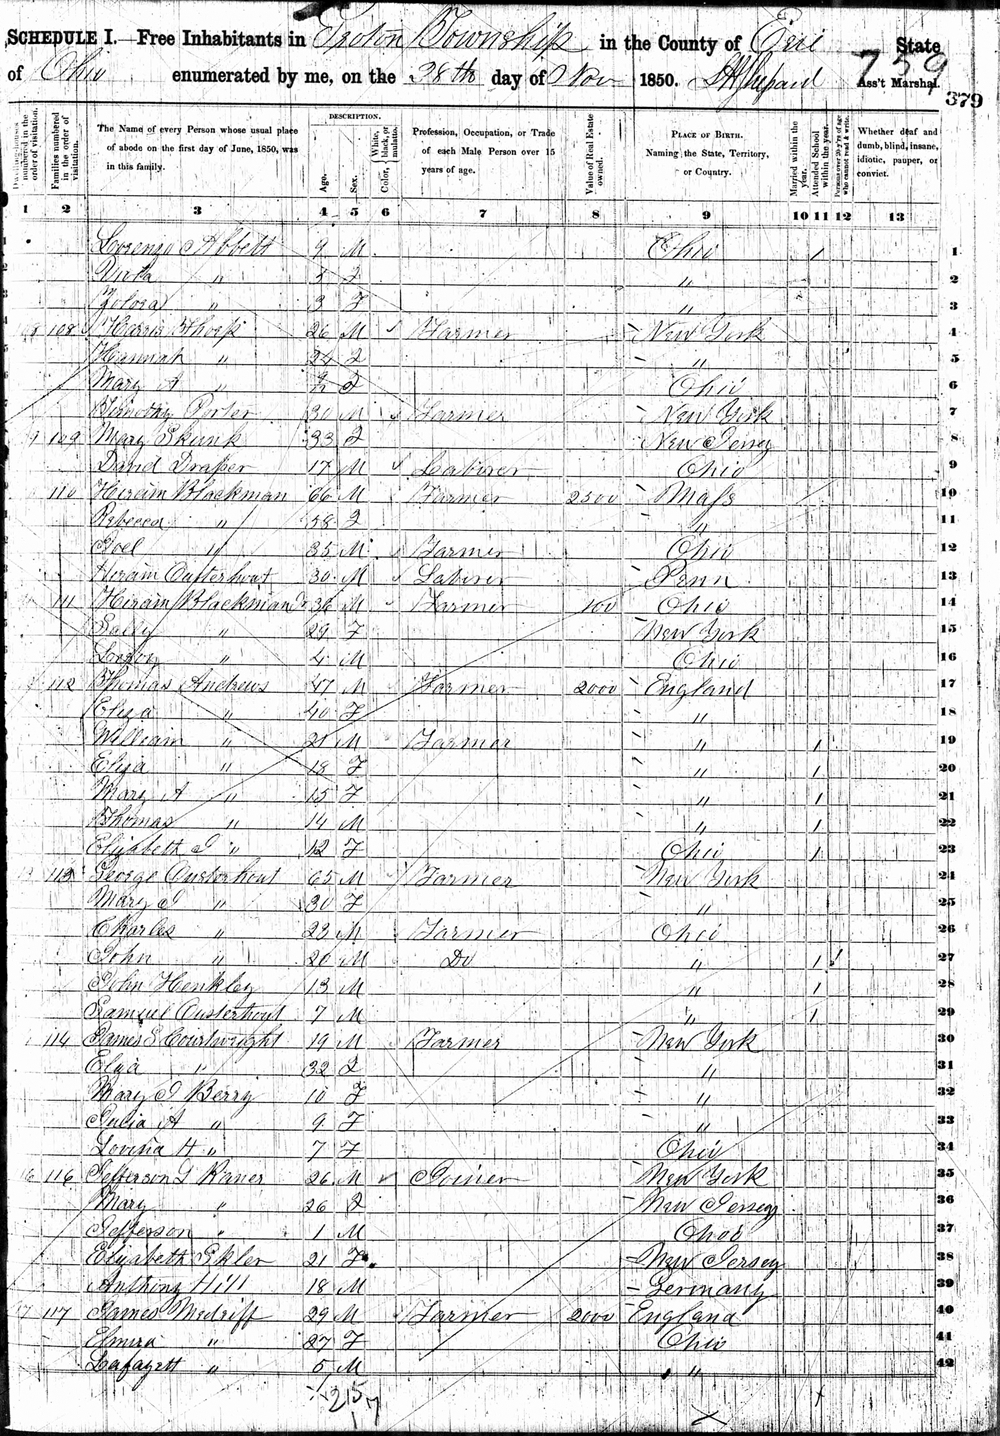 SCHEDULE I.—Free Inhabitants in Groton Township in the County of Erie State
of Ohio enumerated by me, on the 28th day of Nov 1850. Ass't Marshal.
759
379
Dwelling-houses numbered in the order of visitation.
Families numbered in the order of visitation.
The Name of every Person whose usual place of abode on the first day of June, 1850, was in this family.
DESCRIPTION.
Age.
Sex.
Color, White, black, or mulatto.
Profession, Occupation, or Trade of each Male Person over 15 years of age.
Value of Real Estate owned.
PLACE OF BIRTH. Naming the State, Territory, or Country.
Married within the year.
Attended School within the year.
Persons over 20 y'rs of age who cannot read & write.
Whether deaf and dumb, blind, insane, idiotic, pauper, or convict.
1 2 3 4 5 6 7 8 9 10 11 12 13
Lorenzo Abbett 9 M Ohio / 1
" 5 F " 2
" 3 F " 3
108 Harris Thorp 26 M Farmer New York 4
Hannah " 24 F " 5
Mary A " F Ohio 6
Timothy Porter 30 M Farmer New York 7
109 Mary Skunk 33 F New Jersey 8
David Draper 17 M Laborer Ohio 9
110 Hiram Blackman 66 M Farmer 2500 Mass 10
Rebecca " 58 F " 11
Joel " 35 M Farmer Ohio 12
Hiram Ousterhout 30 M Laborer Penn 13
111 Hiram Blackman Jr 36 M Farmer 100 Ohio 14
Sally " 29 F New York 15
" 4 M Ohio 16
112 Thomas Andrews 47 M Farmer 2000 England 17
Eliza " 40 F " 18
William " 21 M Farmer " / 19
Eliza " 18 F " / 20
Mary A " 15 F " / 21
Thomas " 14 M " / 22
Elizabeth J " 12 F Ohio / 23
113 George Ousterhout 65 M Farmer New York 24
Mary J " 30 F " 25
Charles " 23 M Farmer Ohio 26
John " 20 M Do " / / 27
John Henkley 13 M " / 28
Samuel Ousterhout 7 M " / 29
114 James S Courtwright 19 M Farmer New York 30
Eliza " 32 F " 31
Mary J Berry 10 F " 32
Julia A " 9 F " 33
Lovina H " 7 F Ohio 34
116 116 Jefferson G Raner 26 M Joiner New York 35
Mary " 26 F New Jersey 36
Jefferson " 1 M Ohio 37
Elizabeth Ekler 21 F New Jersey 38
Anthony Hill 18 M Germany 39
117 117 James Medriff 29 M Farmer 2000 England 40
Elmira " 27 F Ohio 41
Lafayett " 5 M " 42